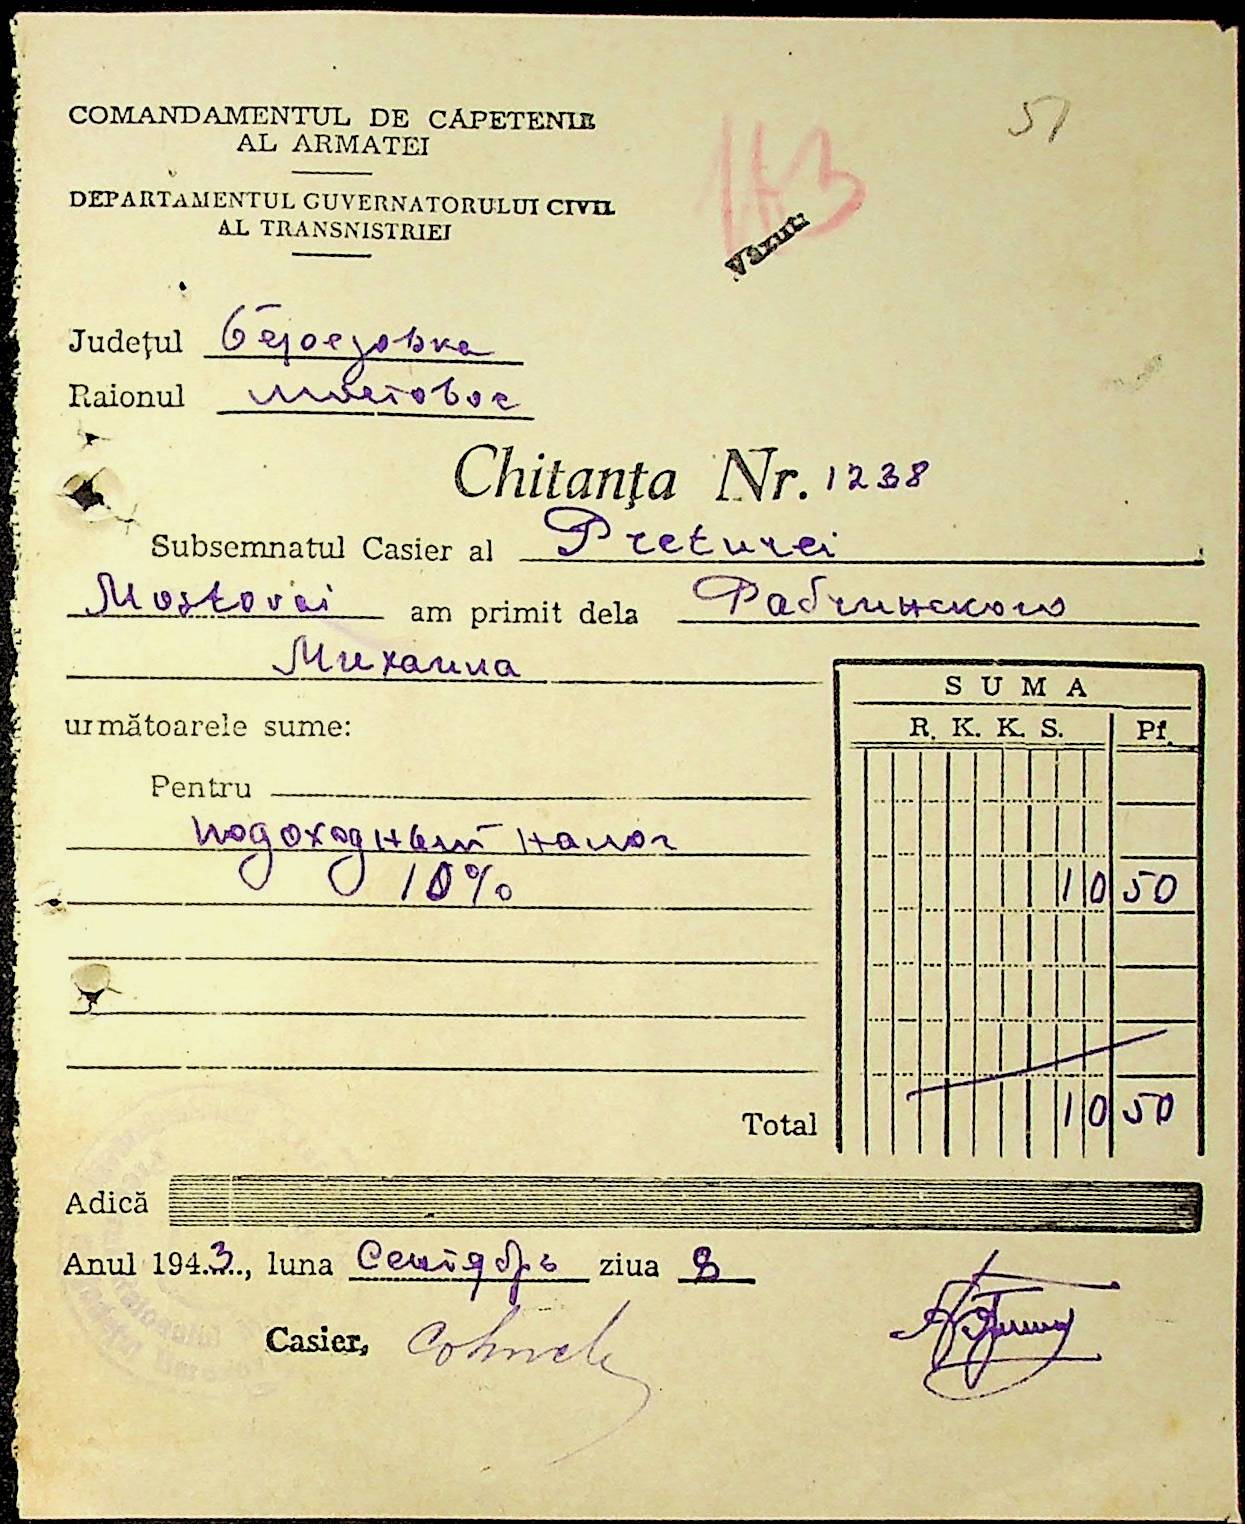 51
113
COMANDAMENTUL DE CĂPETENIE
AL ARMATEI
DEPARTAMENTUL GUVERNATORULUI CIVIL
AL TRANSNISTRIEI
Văzut:
Județul Березовка
Raionul Мостовое
Chitanța Nr. 1238
Subsemnatul Casier al Preturei
Mostovoi am primit dela Рабчинского
Михаила
SUMA
R. K. K. S. Pf.
următoarele sume:
Pentru
подоходный налог
10% 10 50
Total 10 50
Adică
Anul 1943, luna Сентябрь ziua 8
Casier,